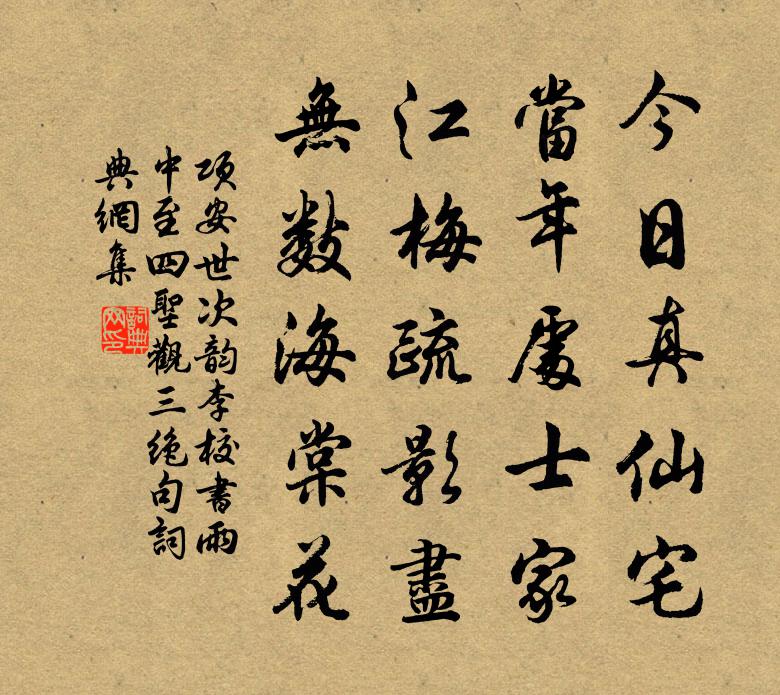 今日真仙宅
當年處士家
江梅疏影盡
無數海棠花
項安世次韵李校書雨
中至四聖觀三絶句詞
典網集
詞典
网印